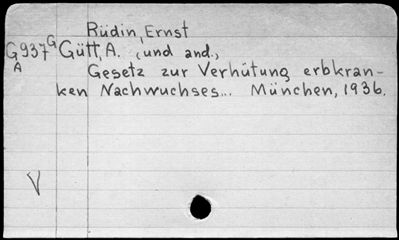 Rüdin, Ernst
G937G Gütt, A. (und and.,
A
Gesetz zur Verhütung erbkran-
ken Nachwuchses... München, 1936.
V